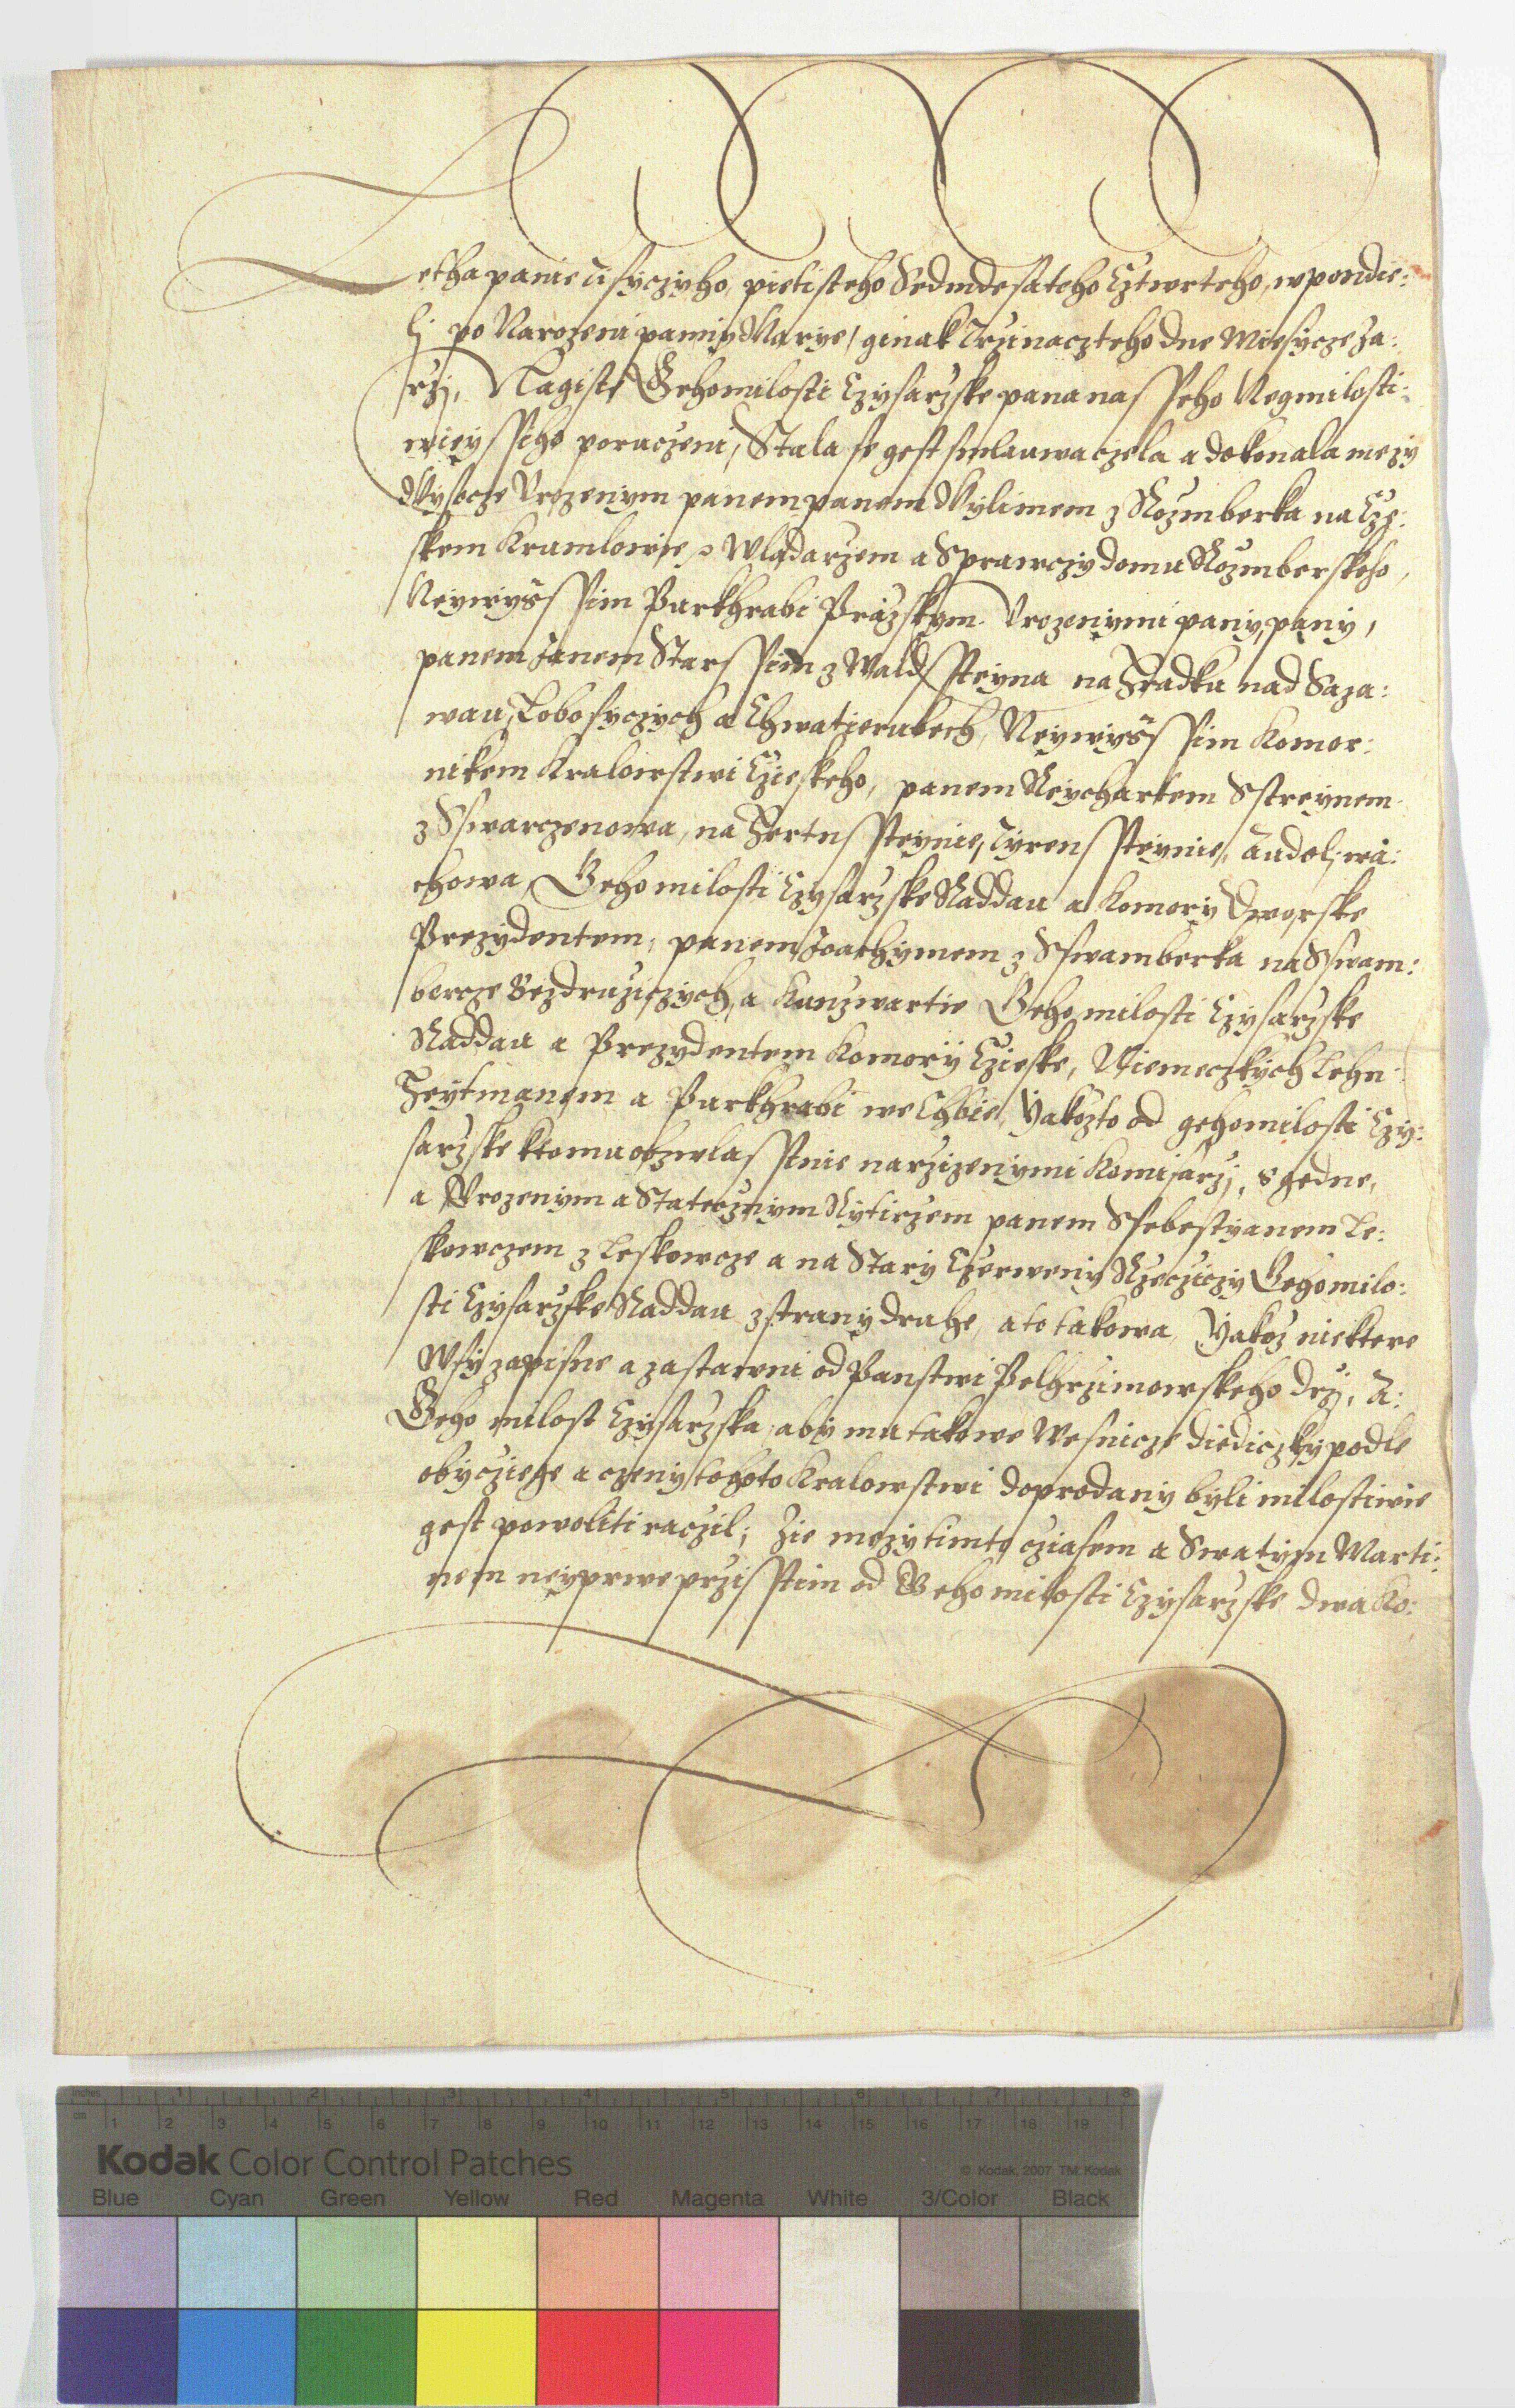 Letha panie Tisyczyho pietisteho Sedmdesateho Cztwrteho, w pondie:
li po Narozeni panny Marye, ginak Trzinacztehodne Miesycze Za:
rzj, Nagiste Geho milosti Czysarzske pana nassseho Neymilosti:
wieyssiho poruczeni, Stala se gest smlauwa czela a dokonala mezy
Wysocze Urozenym panem panem Wylimem z Rozmberka na Cze:
skem Krumlowie, Wladarzem a Sprawczy domu Rozmberskeho,
Neywyssim Purkhrabi Prazskym. Urozenymi pany, pany,
panem Janem Starssim z Waldssteyna na Hradku nad Saza:
wau, Lobosyczych a Chwatierubech, Neywyssim Komor:
nikem Kralowstwi Czieskeho, panem Reychartem Sstreynem
z Sswarczenowa, na Hertnssteynie, Tyrenssteynie, Audoli wa:
chowa, Geho milosti Czysarzske Raddau a Komory Dworske
Prezydentem, panem Joachymem z Sswamberka na Sswam:
bercze Bezdruziczych, a Kunzwartie Geho milosti Czysarzske
Raddau a Prezydentem Komory Czieske, Niemeczkych Lehn
Heytmanem a Purkhrabi we Chbie, Yakozto od geho milosti Czy:
sarzske ktomu obzwlasstnie narzizenymi Komisarzj, s gedne,
a Urozenym a Statecznym Rytirzem panem Ssebestyanem Le:
skowczem z Leskowcze a na Stary Czerweny Rzecziczy Geho milo:
sti Czysarzske Raddau z strany druhe, a to takowa, Yakoz niektere
Wsy zapisne a zastawni od Panstwi Pelhrzimowskeho drzj, A:
Geho milost Czysarzska, aby mu takowe Wesnicze diediczky podle
obycziege a czeny tohoto Kralowstwi doprodany byli milostiwie
gest powoliti raczil; Zie mezy timto cziasem a Swatym Marti:
nem neyprwe przisstim od Geho milosti Czysarzske dwa Ko:
Kodak Color Control Patches
© Kodak, 2007 TM: Kodak
inches 1 2 3 4 5 6 7 8
cm 1 2 3 4 5 6 7 8 9 10 11 12 13 14 15 16 17 18 19
Blue Cyan Green Yellow Red Magenta White 3/Color Black